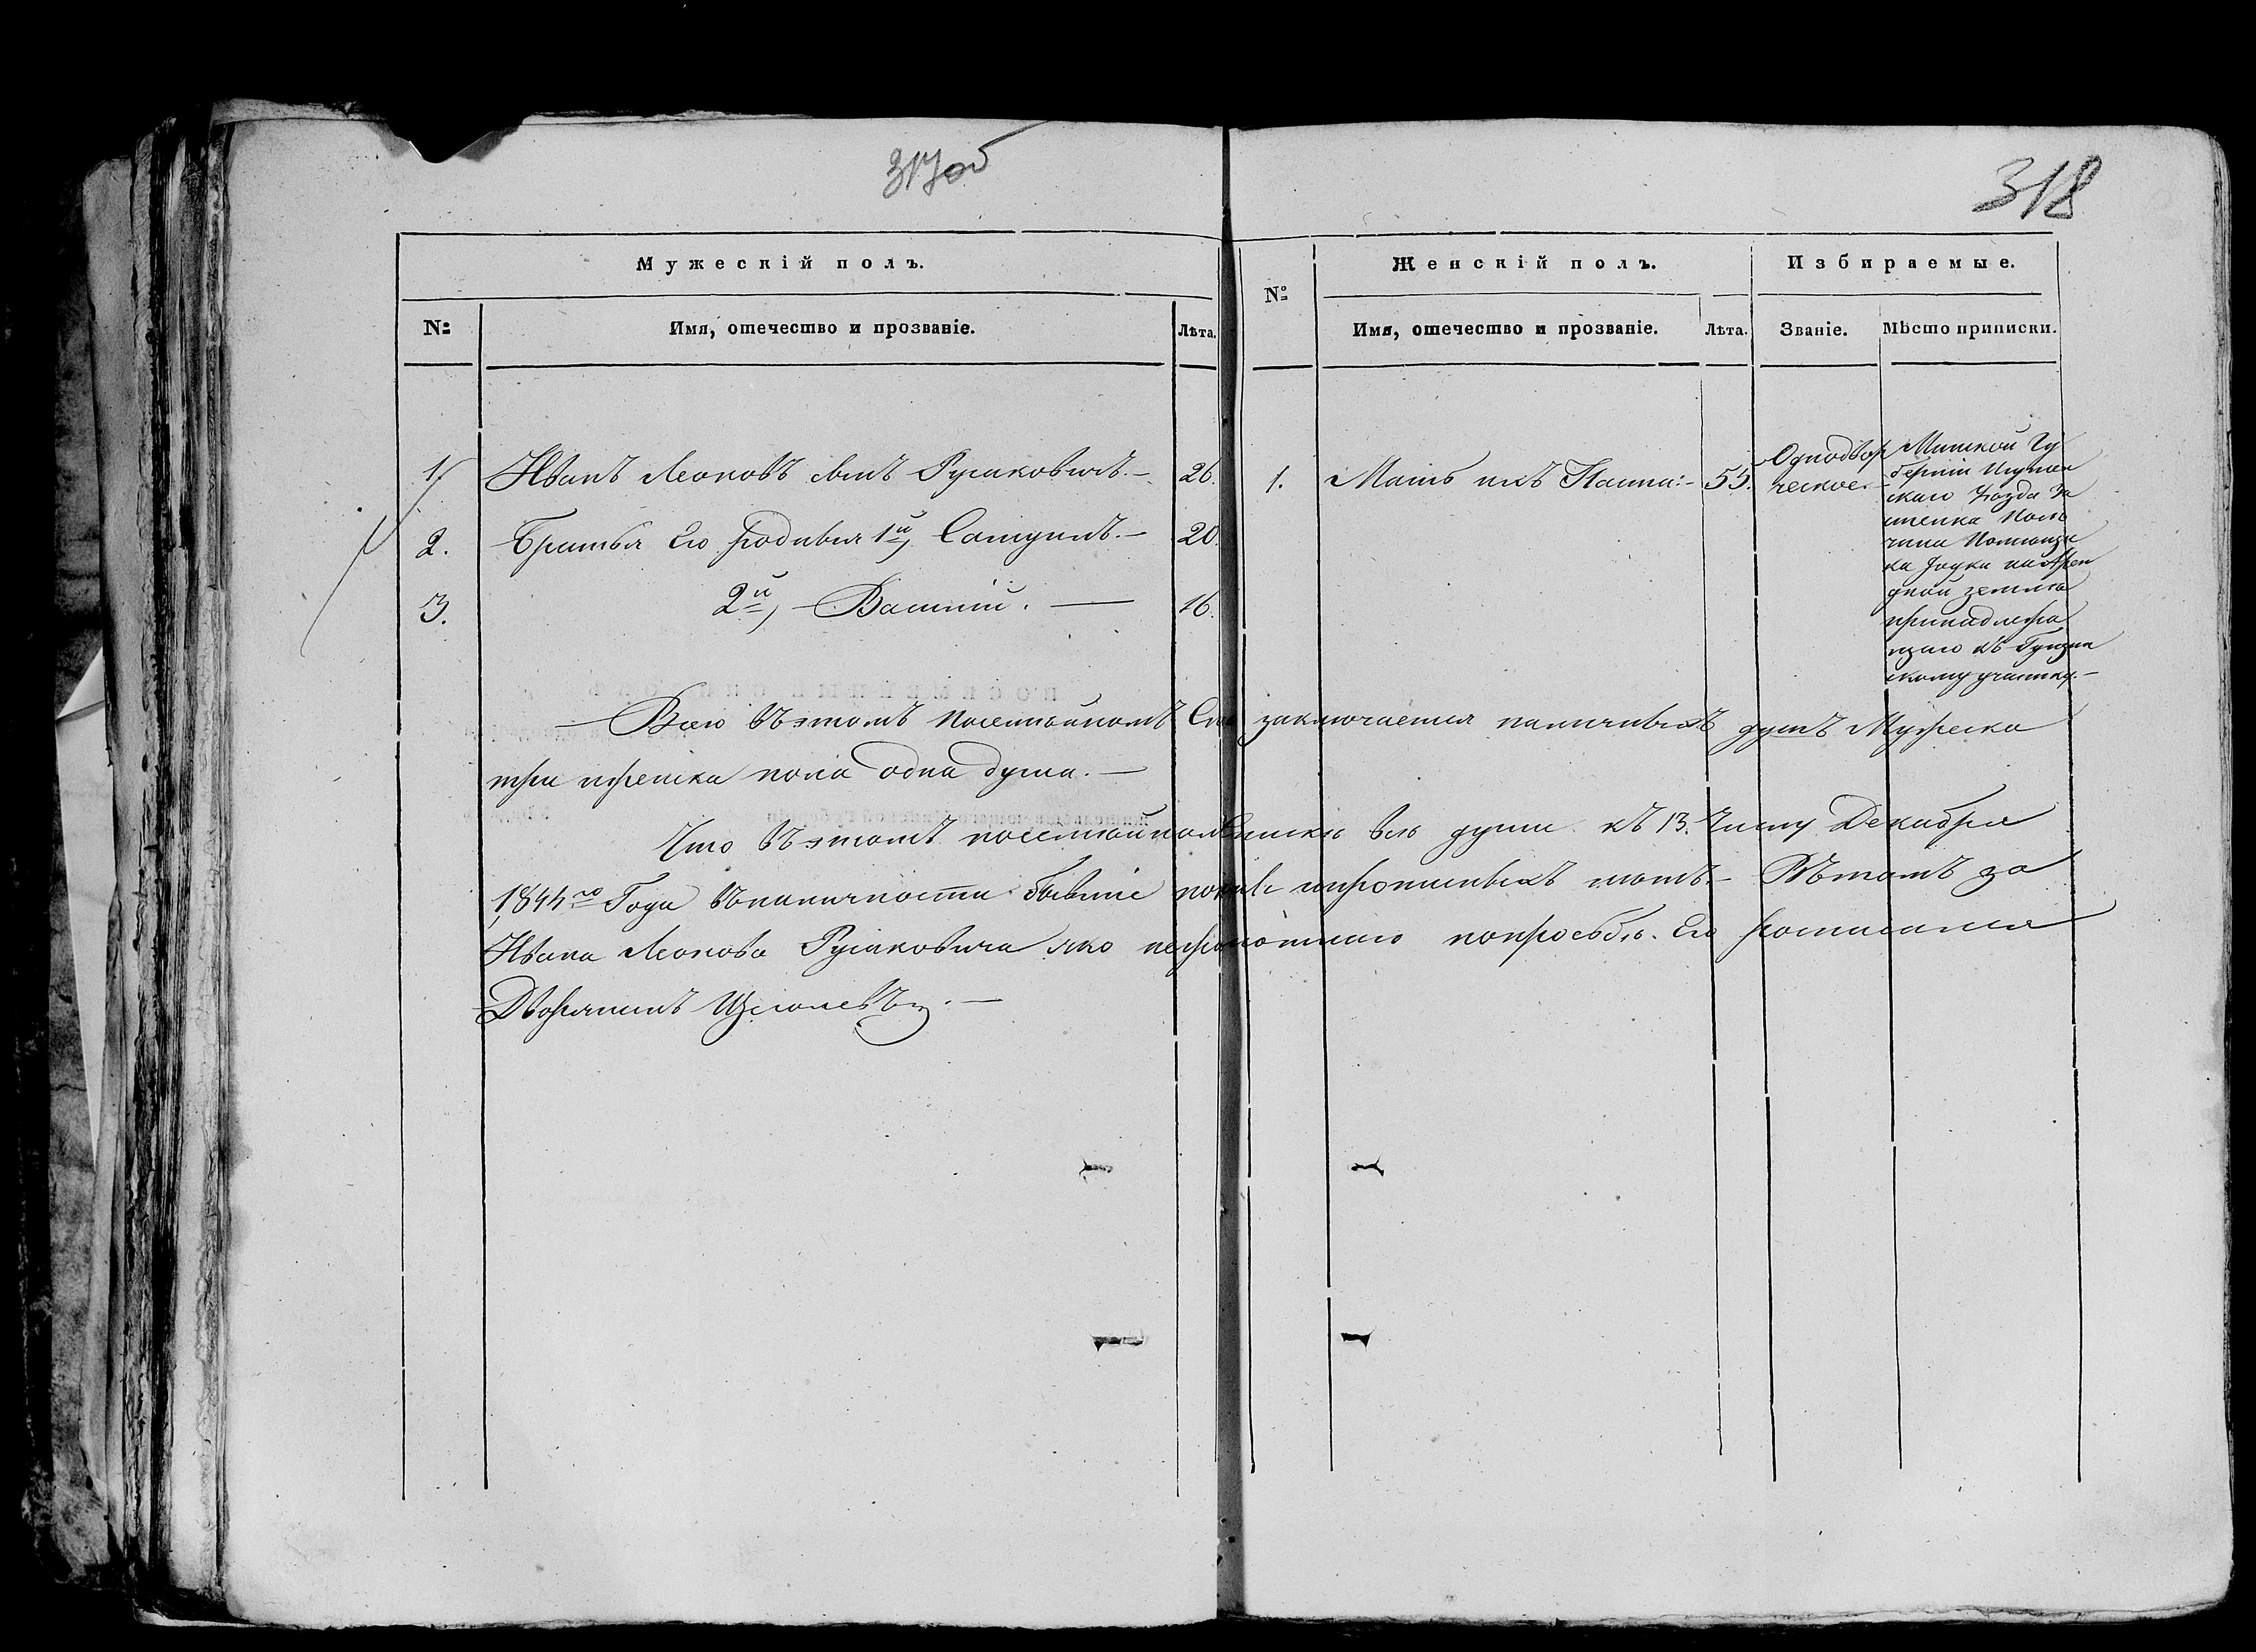 317об
318
Мужескій полъ.
№
Женскій полъ.
Избираемые.
№
Имя, отечество и прозваніе.
Лѣта.
Имя, отечество и прозваніе.
Лѣта.
Званіе.
Мѣсто приписки.
1 Иванъ Леоновъ сынъ Русаковичь. — 26. 1. Мать ихъ Настя: — 55. Однодвор
ческое. —
Минской Гу
берніи Игумен
скаго уѣзда За
стенка
Помѣщи
ка на Арен
дной землѣ
принадлежа
щаго къ
скому участку. —
2. Братья Его родныя 1й, — 20.
3. 2й, — Василій. — 16.
Всего въ этомъ посемейномъ заключается наличныхъ душъ Мужеска
три и женска пола одна душа. —
Что въ этомъ посемейномъ спискѣ всѣ души къ 13. Числу Декабря
1844го Года въ наличности бывшіе нѣтъ. — Въ томъ за
Ивана Леонова Русаковича яко неграмотнаго по прозьбѣ Его росписался
Дворянинъ